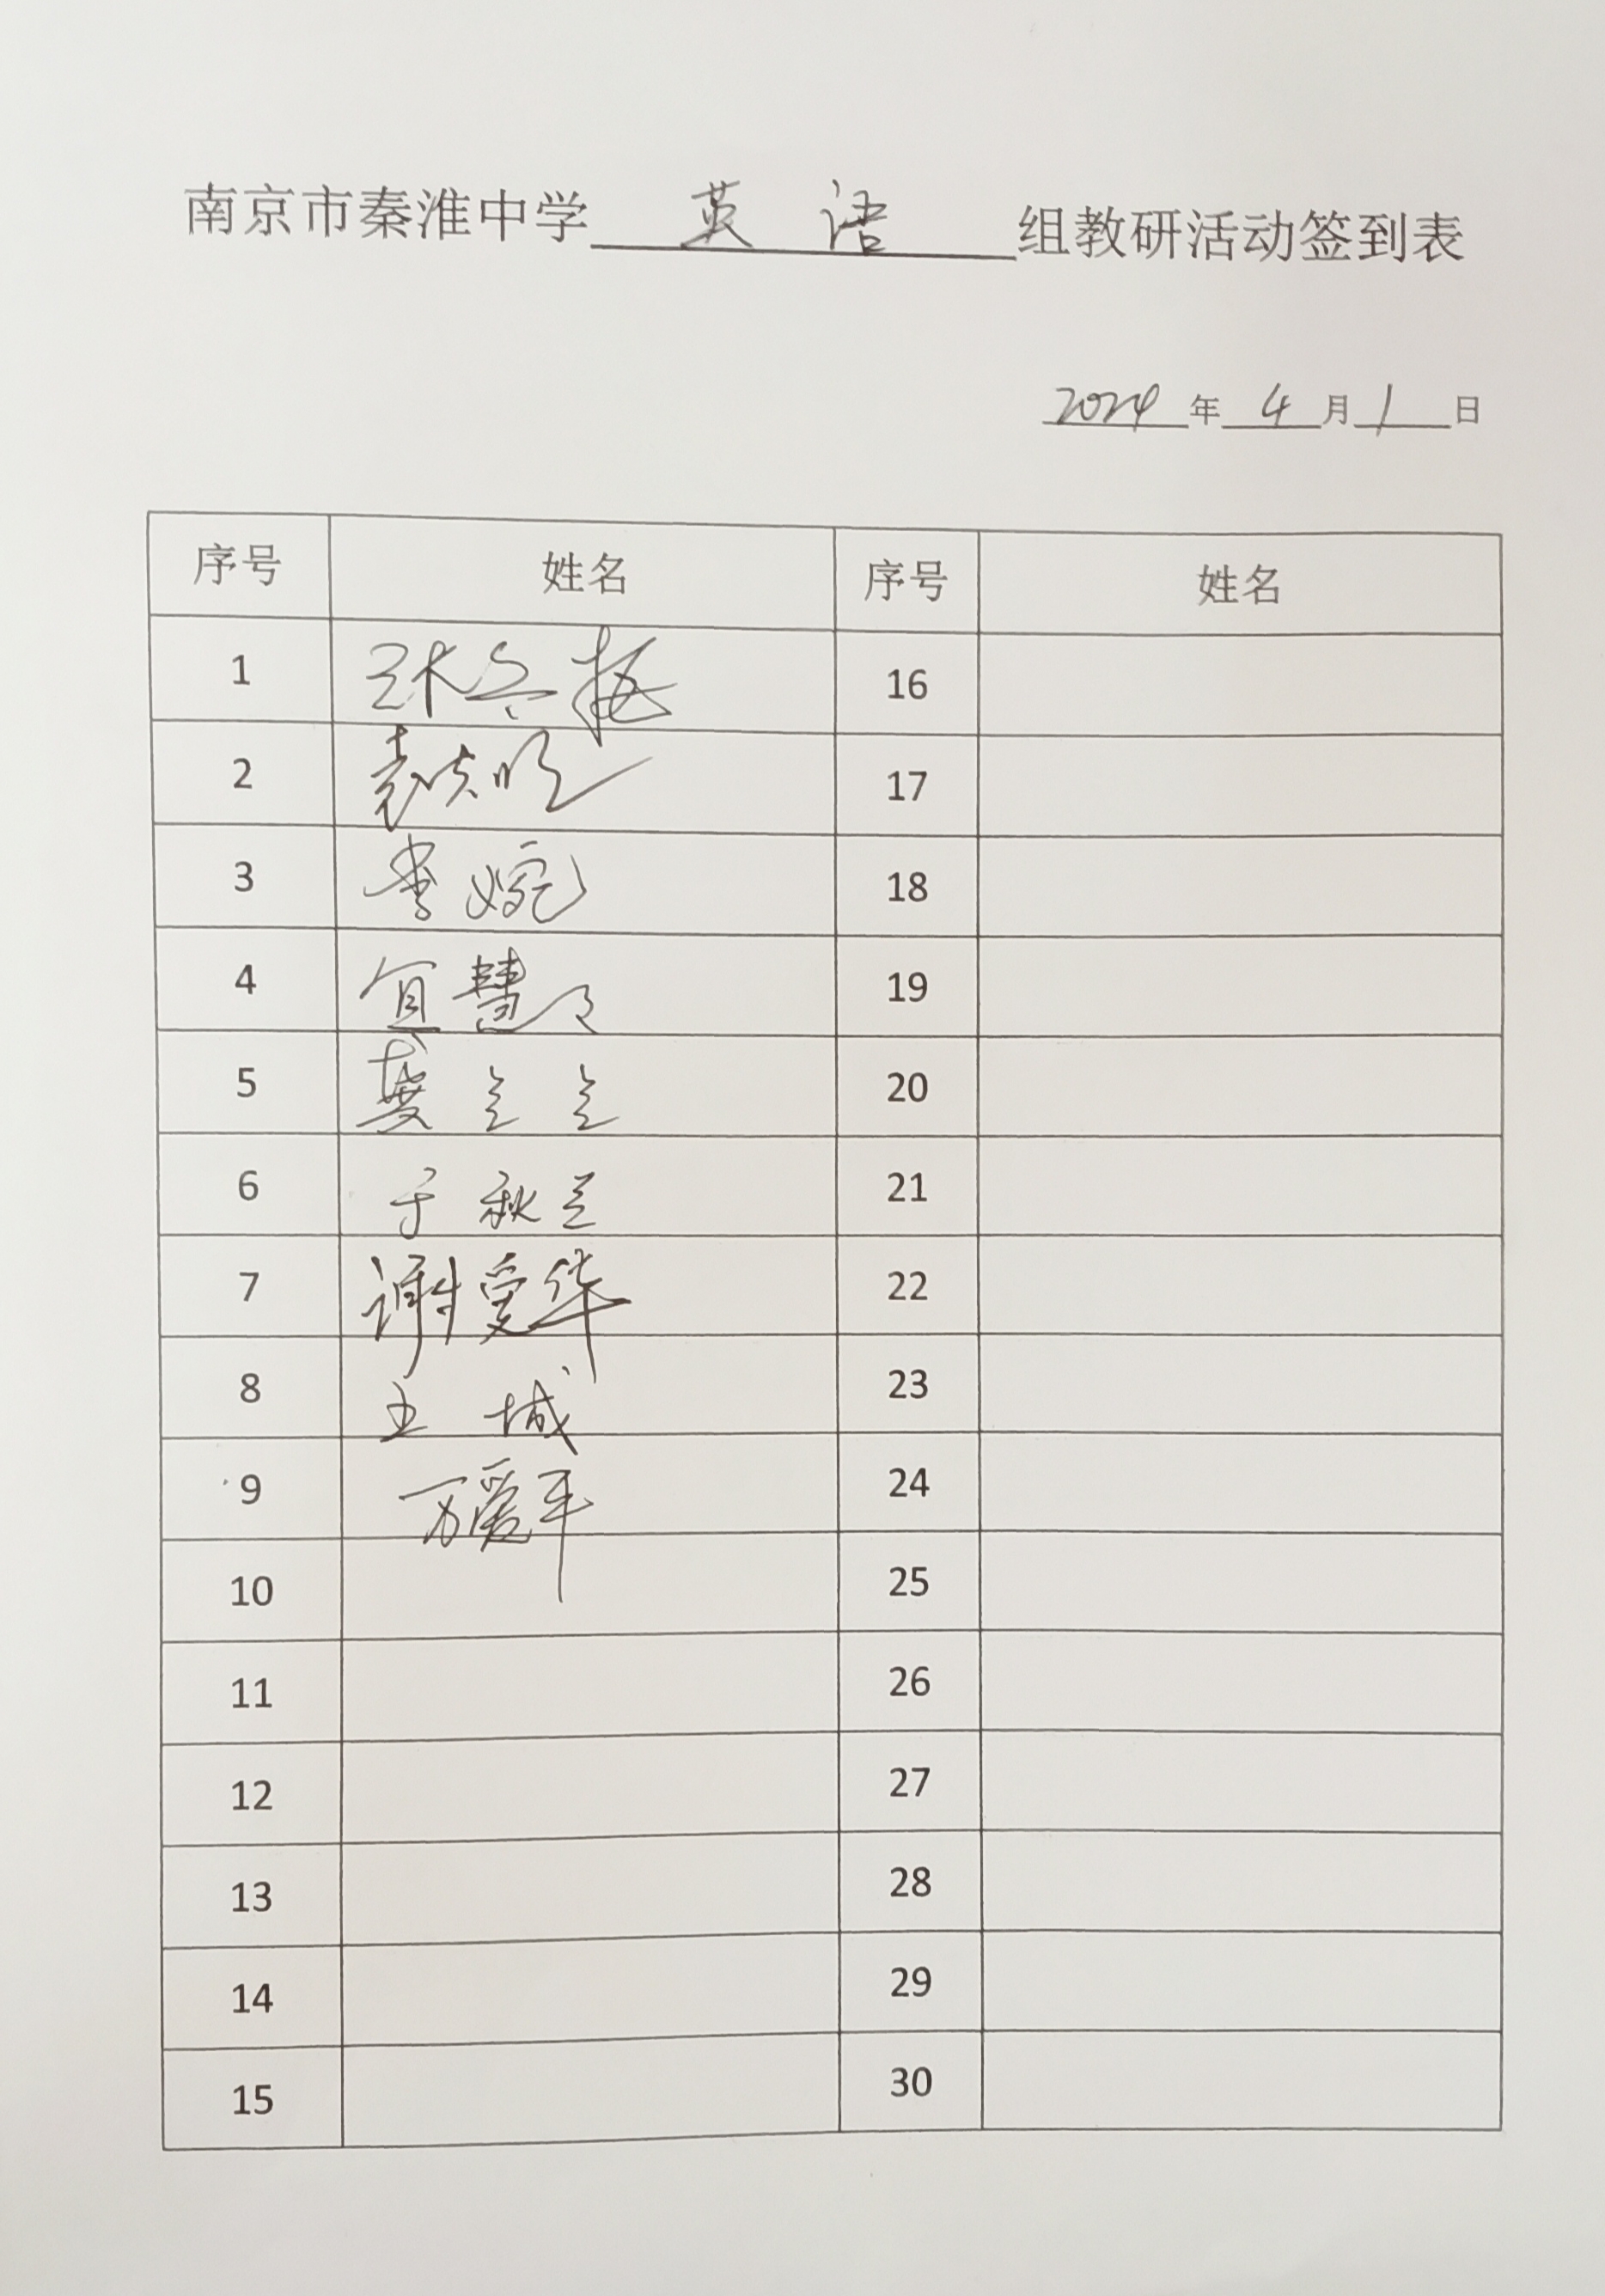 南京市秦淮中学 英语 组教研活动签到表
2024 年 4 月 1 日
序号 姓名 序号 姓名
1 16
2 17
3 李婉 18
4 宣慧 19
5 龚 20
6 于秋兰 21
7 谢爱华 22
8 王城 23
9 万爱平 24
10 25
11 26
12 27
13 28
14 29
15 30